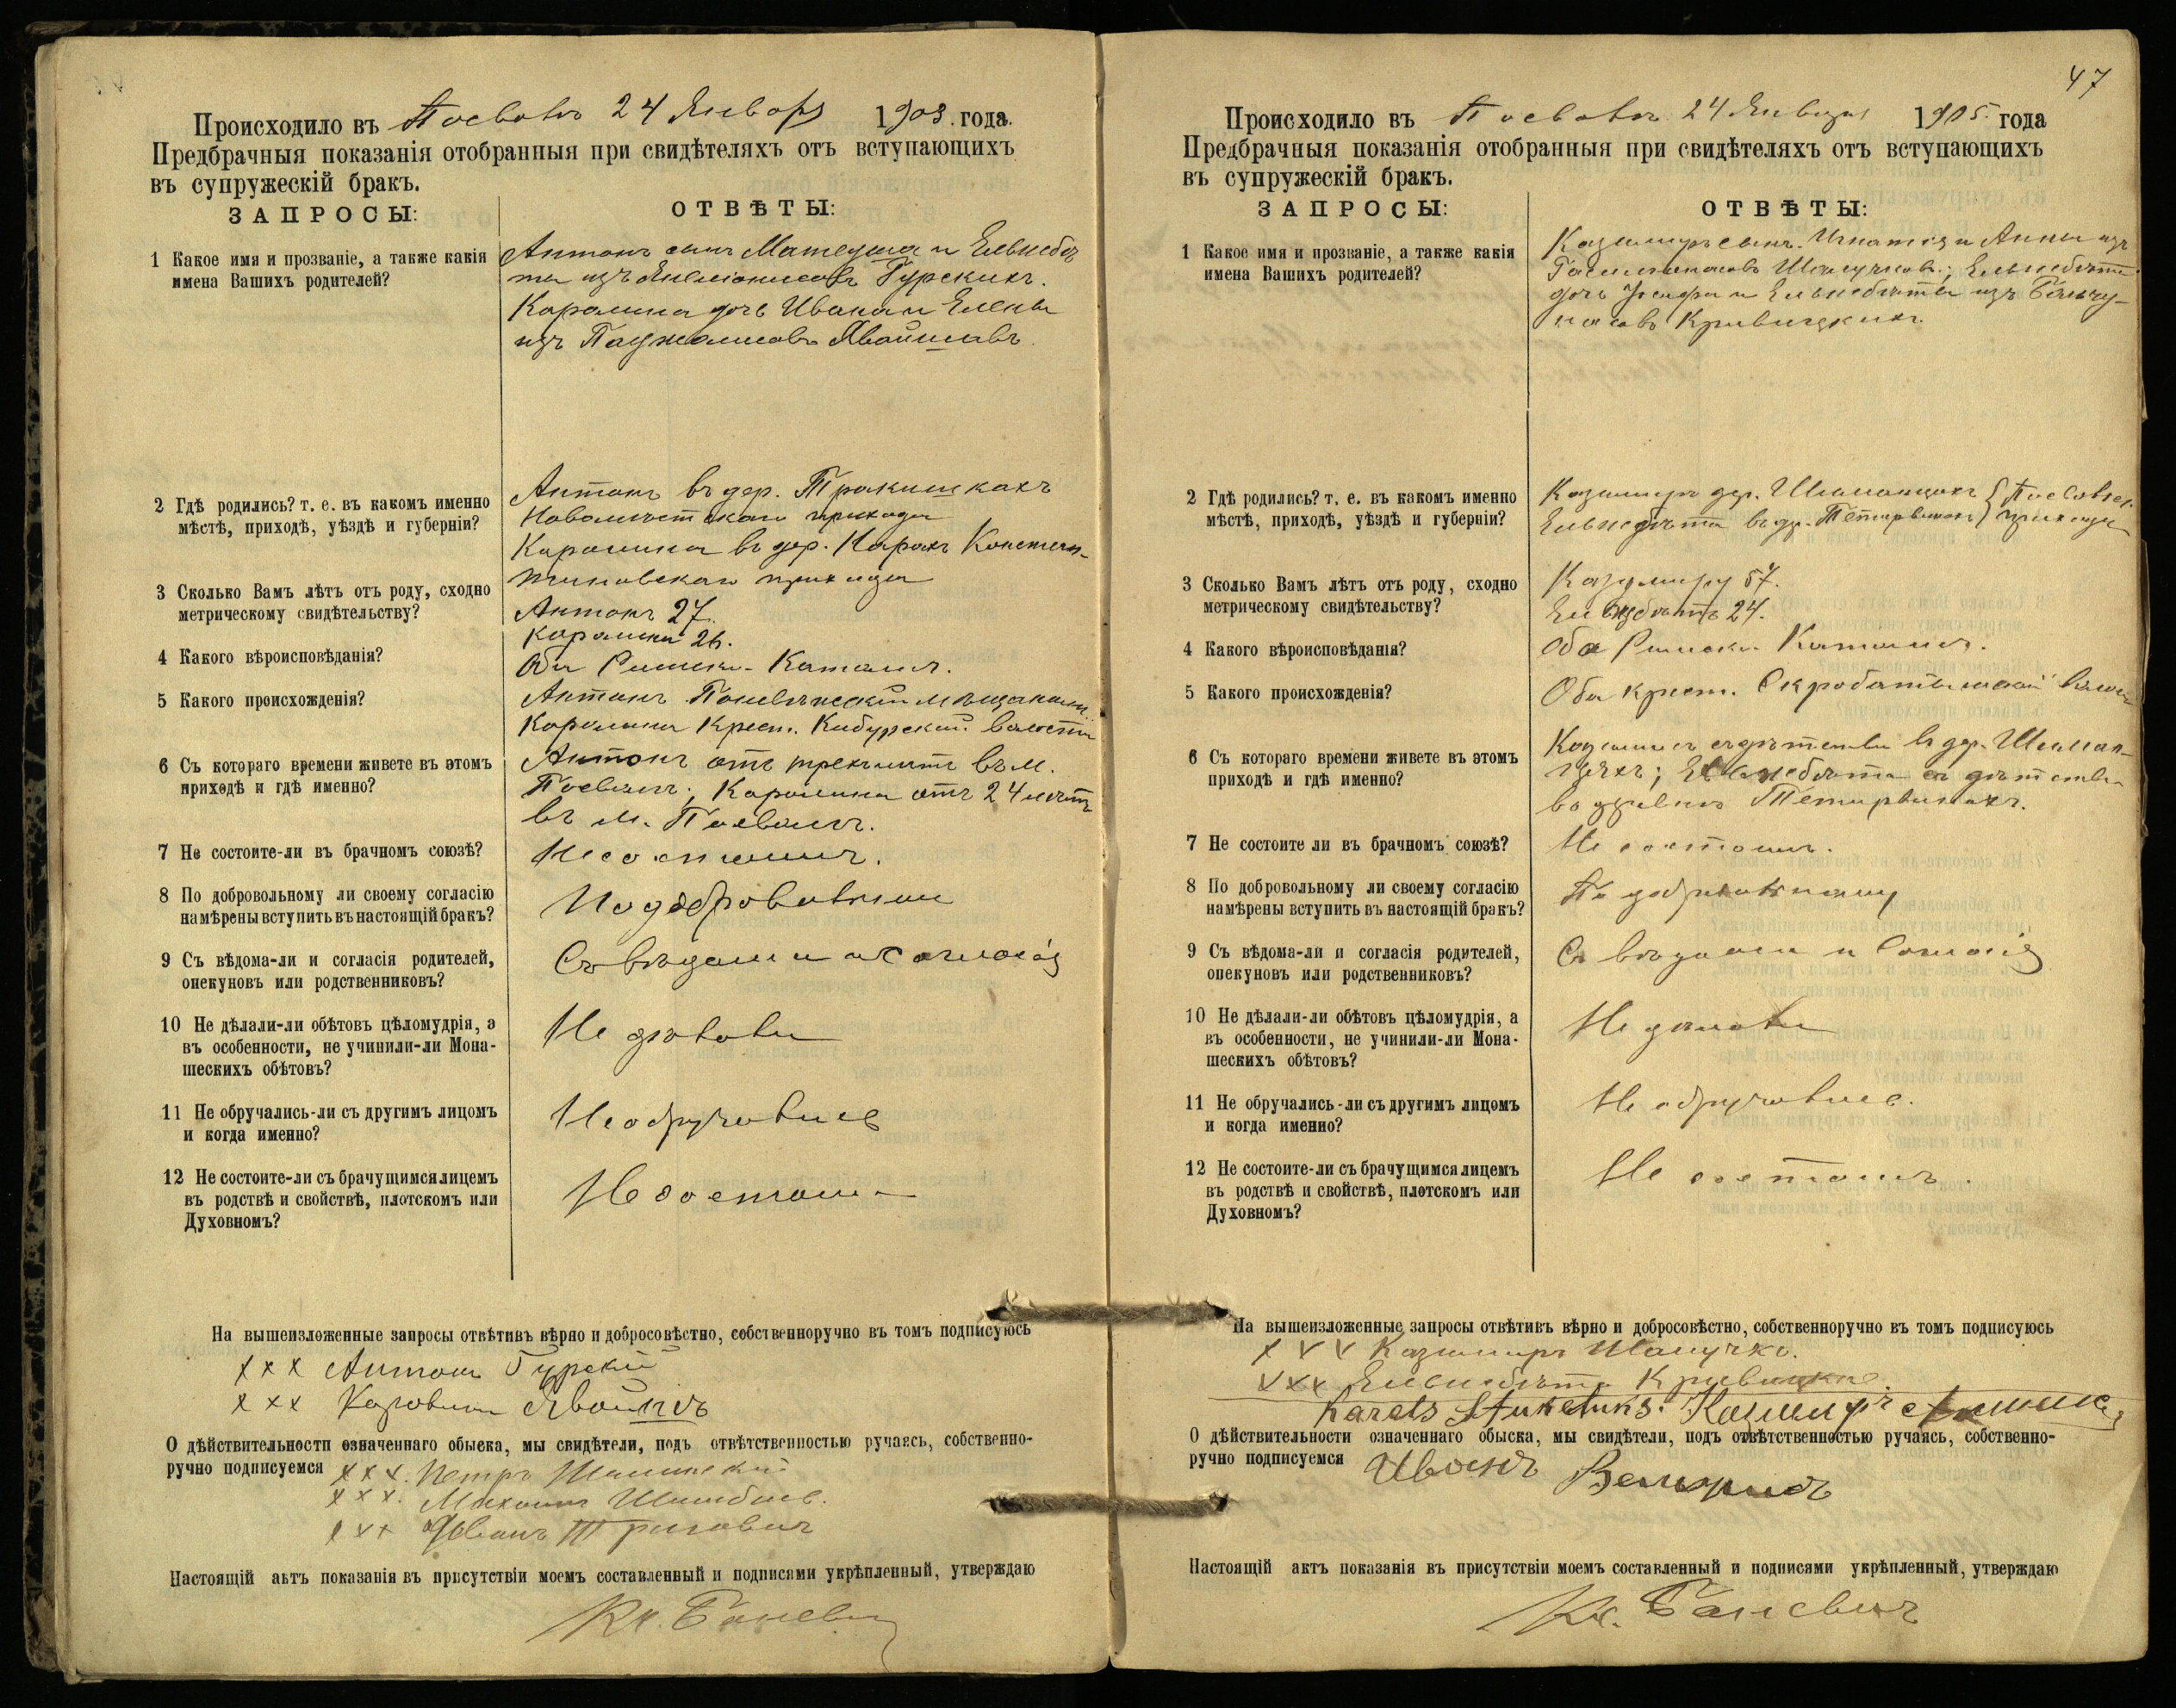 Происходило въ Посволь 24 Января 1903 года.
Предбрачныя показанія отобранныя при свидѣтеляхъ отъ вступающихъ
въ супружескій бракъ.
ЗАПРОСЫ:
ОТВѢТЫ:
1 Какое имя и прозваніе, а также какія
имена Вашихъ родителей?
Антонъ сынъ Матеуша и Ельжбѣ-
ты изъ Гурскихъ.
Каролина дочь Ивана и Елены
изъ Явойшовъ.
2 Гдѣ родились? т. е. въ какомъ именно
мѣстѣ, приходѣ, уѣздѣ и губерніи?
Антонъ въ дер. Тракишкахъ
Новомѣстскаго прихода
Каролина въ дер. Константи-
новскаго прихода
3 Сколько Вамъ лѣтъ отъ роду, сходно
метрическому свидѣтельству?
Антонъ 27.
Каролина 26.
4 Какого вѣроисповѣданія?
Оба Римско-Католич.
5 Какого происхожденія?
Антонъ Поневѣжскій мѣщанинъ
Каролина Крест. Кибурской волости
6 Съ котораго времени живете въ этомъ
приходѣ и гдѣ именно?
Антонъ отъ трехъ лѣтъ въ м.
Посволь; Каролина отъ 24 лѣтъ
въ м. Посволь.
7 Не состоите-ли въ брачномъ союзѣ?
Не состоимъ.
8 По добровольному ли своему согласію
намѣрены вступить въ настоящій бракъ?
По добровольному
9 Съ вѣдома-ли и согласія родителей,
опекуновъ или родственниковъ?
Съ вѣдома и согласія
10 Не дѣлали-ли обѣтовъ цѣломудрія, а
въ особенности, не учинили-ли Мона-
шескихъ обѣтовъ?
Не дѣлали
11 Не обручались-ли съ другимъ лицомъ
и когда именно?
Не обручались
12 Не состоите-ли съ брачущимся лицемъ
въ родствѣ и свойствѣ, плотскомъ или
Духовномъ?
Не состоимъ
На вышеизложенные запросы отвѣтивъ вѣрно и добросовѣстно, собственноручно въ томъ подписуюсь
ххх Антонъ Гурскій
ххх Каролина Явойшъ
О дѣйствительности означеннаго обыска, мы свидѣтели, подъ отвѣтственностью ручаясь, собственно-
ручно подписуемся ххх. Петръ
ххх. Михаилъ
ххх Иванъ
Настоящій актъ показанія въ присутствіи моемъ составленный и подписями укрѣпленный, утверждаю
Кс. Баневичъ
47
Происходило въ Посволь 24 Января 1905 года
Предбрачныя показанія отобранныя при свидѣтеляхъ отъ вступающихъ
въ супружескій бракъ.
ЗАПРОСЫ:
ОТВѢТЫ:
1 Какое имя и прозваніе, а также какія
имена Вашихъ родителей?
Казимиръ сынъ Игнатія и Анны изъ
Ельжбѣта
дочь Іосифа и Ельжбѣты изъ
Кривицкихъ.
2 Гдѣ родились? т. е. въ какомъ именно
мѣстѣ, приходѣ, уѣздѣ и губерніи?
Казимиръ дер. Посвольск.
Ельжбѣта въ др. прихода
3 Сколько Вамъ лѣтъ отъ роду, сходно
метрическому свидѣтельству?
Казимиру 57.
Ельжбѣтѣ 24.
4 Какого вѣроисповѣданія?
Оба Римско Католич.
5 Какого происхожденія?
Оба крест. Скробатынской волости
6 Съ котораго времени живете въ этомъ
приходѣ и гдѣ именно?
Казимиръ съ дѣтства въ дер.
Ельжбѣта съ дѣтства
въ деревнѣ
7 Не состоите ли въ брачномъ союзѣ?
Не состоимъ.
8 По добровольному ли своему согласію
намѣрены вступить въ настоящій бракъ?
По добровольному
9 Съ вѣдома-ли и согласія родителей,
опекуновъ или родственниковъ?
Съ вѣдома и согласія
10 Не дѣлали-ли обѣтовъ цѣломудрія, а
въ особенности, не учинили-ли Мона-
шескихъ обѣтовъ?
Не дѣлали
11 Не обручались-ли съ другимъ лицомъ
и когда именно?
Не обручались.
12 Не состоите-ли съ брачущимся лицемъ
въ родствѣ и свойствѣ, плотскомъ или
Духовномъ?
Не состоимъ.
На вышеизложенные запросы отвѣтивъ вѣрно и добросовѣстно, собственноручно въ томъ подписуюсь
ххх Казимиръ
ххх Ельжбѣта
Казимиръ
О дѣйствительности означеннаго обыска, мы свидѣтели, подъ отвѣтственностью ручаясь, собственно-
ручно подписуемся Иванъ
Настоящій актъ показанія въ присутствіи моемъ составленный и подписями укрѣпленный, утверждаю
Кс. Баневичъ